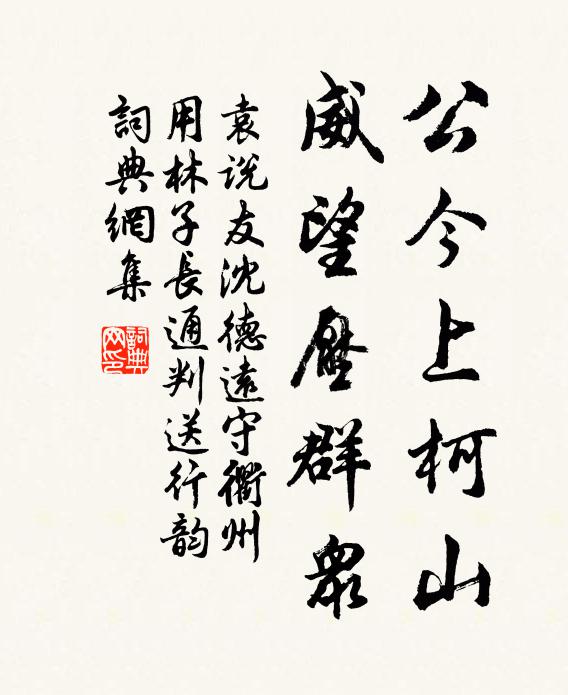 公今上柯山
威望壓群眾
袁说友沈德遠守衢州
用林子長通判送行韵
詞典網集
詞典
网印